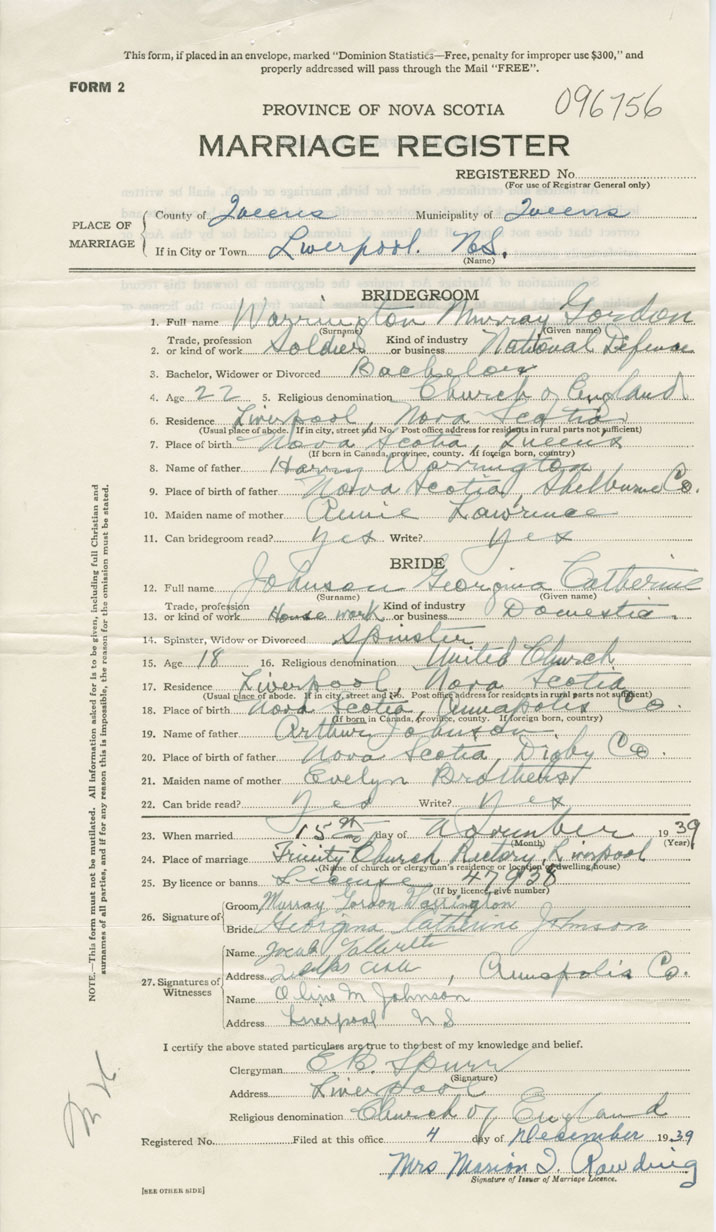 This form, if placed in an envelope, marked "Dominion Statistics—Free, penalty for improper use $300," and
properly addressed will pass through the Mail "FREE".
FORM 2
096756
PROVINCE OF NOVA SCOTIA
MARRIAGE REGISTER
REGISTERED No.
(For use of Registrar General only)
PLACE OF MARRIAGE
County of Queens Municipality of Queens
If in City or Town Liverpool. N.S.
(Name)
BRIDEGROOM
1. Full name Warrington Murray Gordon
(Surname) (Given name)
Trade, profession Kind of industry
2. or kind of work Soldier or business National Defense
3. Bachelor, Widower or Divorced Bachelor
4. Age 22 5. Religious denomination Church of England
6. Residence Liverpool, Nova Scotia
(Usual place of abode. If in city, street and No. Post office address for residents in rural parts not sufficient)
7. Place of birth Nova Scotia, Queens
(If born in Canada, province, county. If foreign born, country)
8. Name of father Harry Warrington
9. Place of birth of father Nova Scotia, Shelburne Co.
10. Maiden name of mother Annie Lawrence
11. Can bridegroom read? yes Write? yes
BRIDE
12. Full name Johnson Georgina Catherine
(Surname) (Given name)
Trade, profession Kind of industry
13. or kind of work House work or business Domestic
14. Spinster, Widow or Divorced Spinster
15. Age 18 16. Religious denomination United Church
17. Residence Liverpool, Nova Scotia
(Usual place of abode. If in city, street and No. Post office address for residents in rural parts not sufficient)
18. Place of birth Nova Scotia, Annapolis Co.
(If born in Canada, province, county. If foreign born, country)
19. Name of father Arthur Johnson.
20. Place of birth of father Nova Scotia, Digby Co.
21. Maiden name of mother Evelyn Brothers
22. Can bride read? Yes Write? yes
23. When married 15th day of November 1939
(Month) (Year)
24. Place of marriage Trinity Church Rectory, Liverpool
(Name of church or clergyman's residence or location of dwelling house)
25. By licence or banns License 47938
(If by licence, give number)
26. Signature of
Groom Murray Gordon Warrington
Bride Georgina Catherine Johnson
27. Signatures of Witnesses
Name Jacob
Address , Annapolis Co.
Name Oline M Johnson
Address Liverpool N S
I certify the above stated particulars are true to the best of my knowledge and belief.
Clergyman E. B. Spurr
(Signature)
Address Liverpool
Religious denomination Church of England
Registered No. Filed at this office 4 day of December 1939
Mrs Marion I. Rawding
Signature of Issuer of Marriage Licence.
[SEE OTHER SIDE]
NOTE.—This form must not be mutilated. All information asked for is to be given, including full Christian and
surnames of all parties, and if for any reason this is impossible, the reason for the omission must be stated.